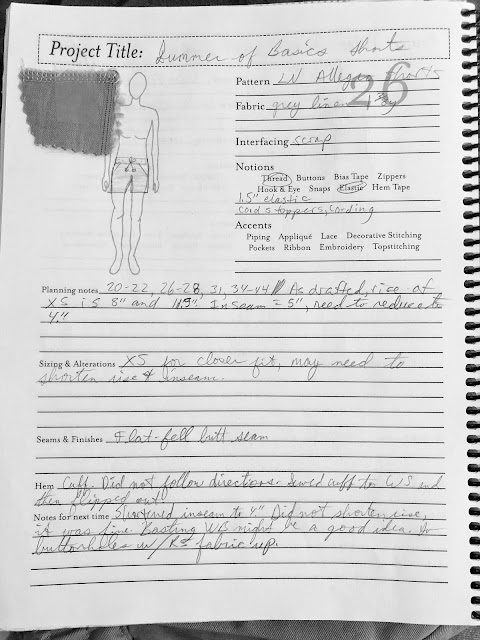 Project Title: Summer of Basics Shorts
Pattern LN Allegro Shorts
26
Fabric grey linen
Interfacing scrap
Notions
Thread Buttons Bias Tape Zippers
Hook & Eye Snaps Elastic Hem Tape
1.5" elastic
cord stoppers, cording
Accents
Piping Appliqué Lace Decorative Stitching
Pockets Ribbon Embroidery Topstitching
Planning notes 20-22, 26-28, 31, 34-44 As drafted, rise of
XS is 8" and 11.5". Inseam = 5", need to reduce to
4."
Sizing & Alterations XS for closer fit, may need to
shorten rise & inseam.
Seams & Finishes Flat-fell butt seam
Hem Cuff. Did not follow directions. Sewed cuff to WS and
then flipped out
Notes for next time Shortened inseam to 4" Did not shorten rise,
it was fine. Basting WB might be a good idea. Do
buttonholes w/ RS fabric up.